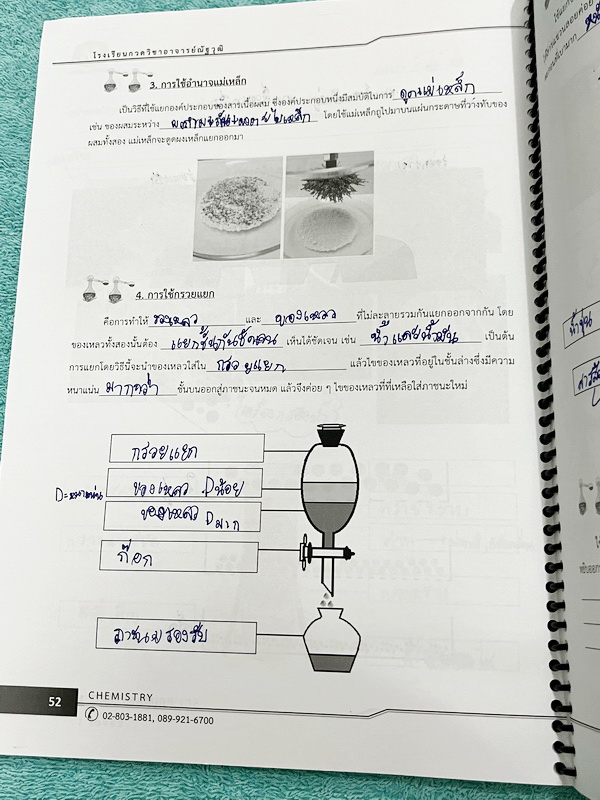 โรงเรียนกวดวิชาอาจารย์ณัฐวุฒิ
3. การใช้อำนาจแม่เหล็ก
เป็นวิธีที่ใช้แยกองค์ประกอบของสารเนื้อผสม ซึ่งองค์ประกอบหนึ่งมีสมบัติในการ ดูดแม่เหล็ก
เช่น ของผสมระหว่าง โดยใช้แม่เหล็กถูไปมาบนแผ่นกระดาษที่วางทับของ
ผสมทั้งสอง แม่เหล็กจะดูดผงเหล็กแยกออกมา
4. การใช้กรวยแยก
คือการทำให้ ของเหลว และ ของเหลว ที่ไม่ละลายรวมกันแยกออกจากกัน โดย
ของเหลวทั้งสองนั้นต้อง แยกชั้นกันชัดเจน เห็นได้ชัดเจน เช่น น้ำและน้ำมัน เป็นต้น
การแยกโดยวิธีนี้จะนำของเหลวใส่ใน กรวยแยก แล้วไขของเหลวที่อยู่ในชั้นล่างซึ่งมีความ
หนาแน่น มากกว่า ชั้นบนออกสู่ภาชนะจนหมด แล้วจึงค่อย ๆ ไขของเหลวที่ที่เหลือใส่ภาชนะใหม่
กรวยแยก
D=หนาแน่น ของเหลว Dน้อย
ของเหลว Dมาก
ก๊อก
ภาชนะรองรับ
52 CHEMISTRY
02-803-1881, 089-921-6700
น้ำขุ่น